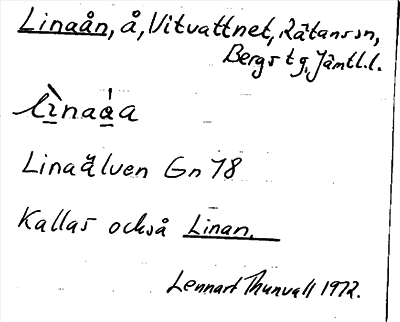 Linaån, å, Vitvattnet, Rätans sn,
Bergs tg, Jämtl.l.
lìnaa̍a
Linaälven Gn 78
Kallas också Linan.
Lennart Thunvall 1972.